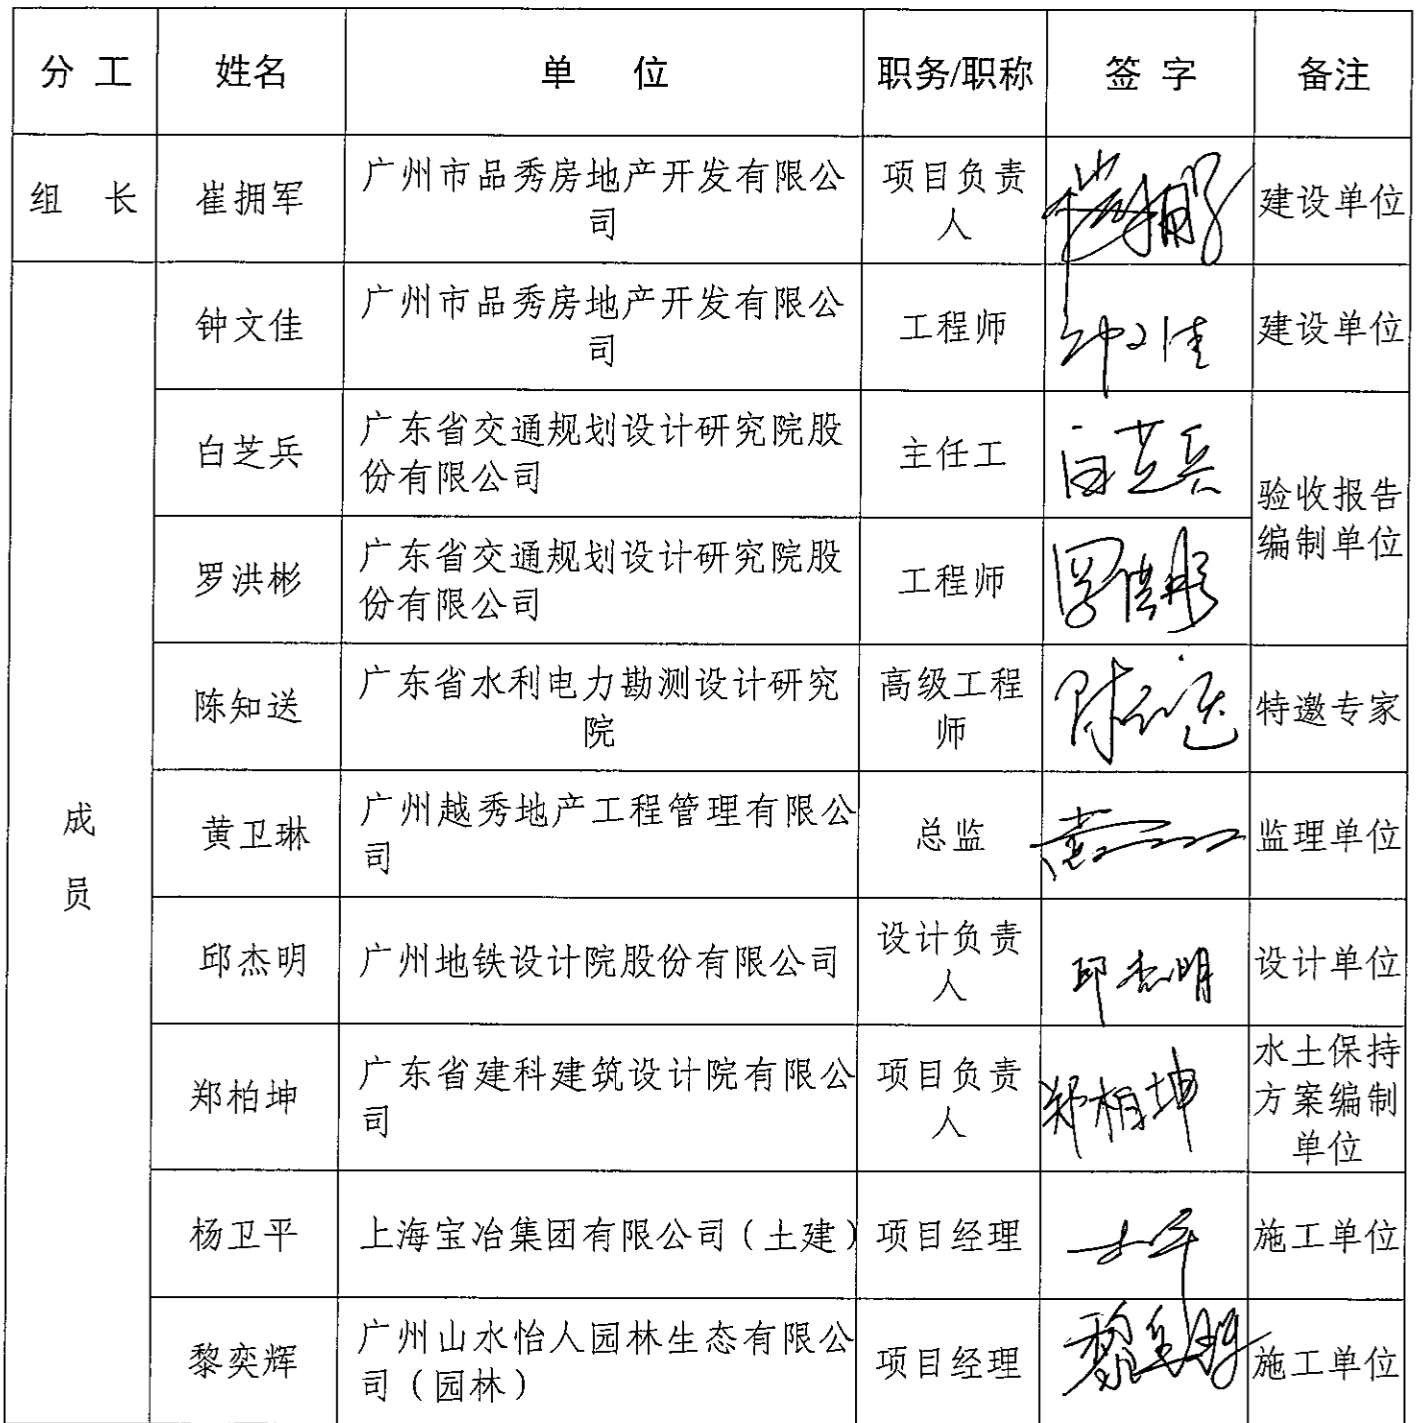 分 工 姓名 单 位 职务/职称 签 字 备注
组 长 崔拥军 广州市品秀房地产开发有限公 项目负责 建设单位
司 人
钟文佳 广州市品秀房地产开发有限公 工程师 钟文佳 建设单位
司
白芝兵 广东省交通规划设计研究院股 主任工 白芝兵
份有限公司
验收报告
编制单位
罗洪彬 广东省交通规划设计研究院股 工程师 罗洪彬
份有限公司
陈知送 广东省水利电力勘测设计研究 高级工程 陈知送 特邀专家
院 师
成
员
黄卫琳 广州越秀地产工程管理有限公 总监 监理单位
司
邱杰明 广州地铁设计院股份有限公司 设计负责 邱杰明 设计单位
人
郑柏坤 广东省建科建筑设计院有限公 项目负责 郑柏坤 水土保持
司 人 方案编制
单位
杨卫平 上海宝冶集团有限公司（土建） 项目经理 施工单位
黎奕辉 广州山水怡人园林生态有限公 项目经理 施工单位
司（园林）